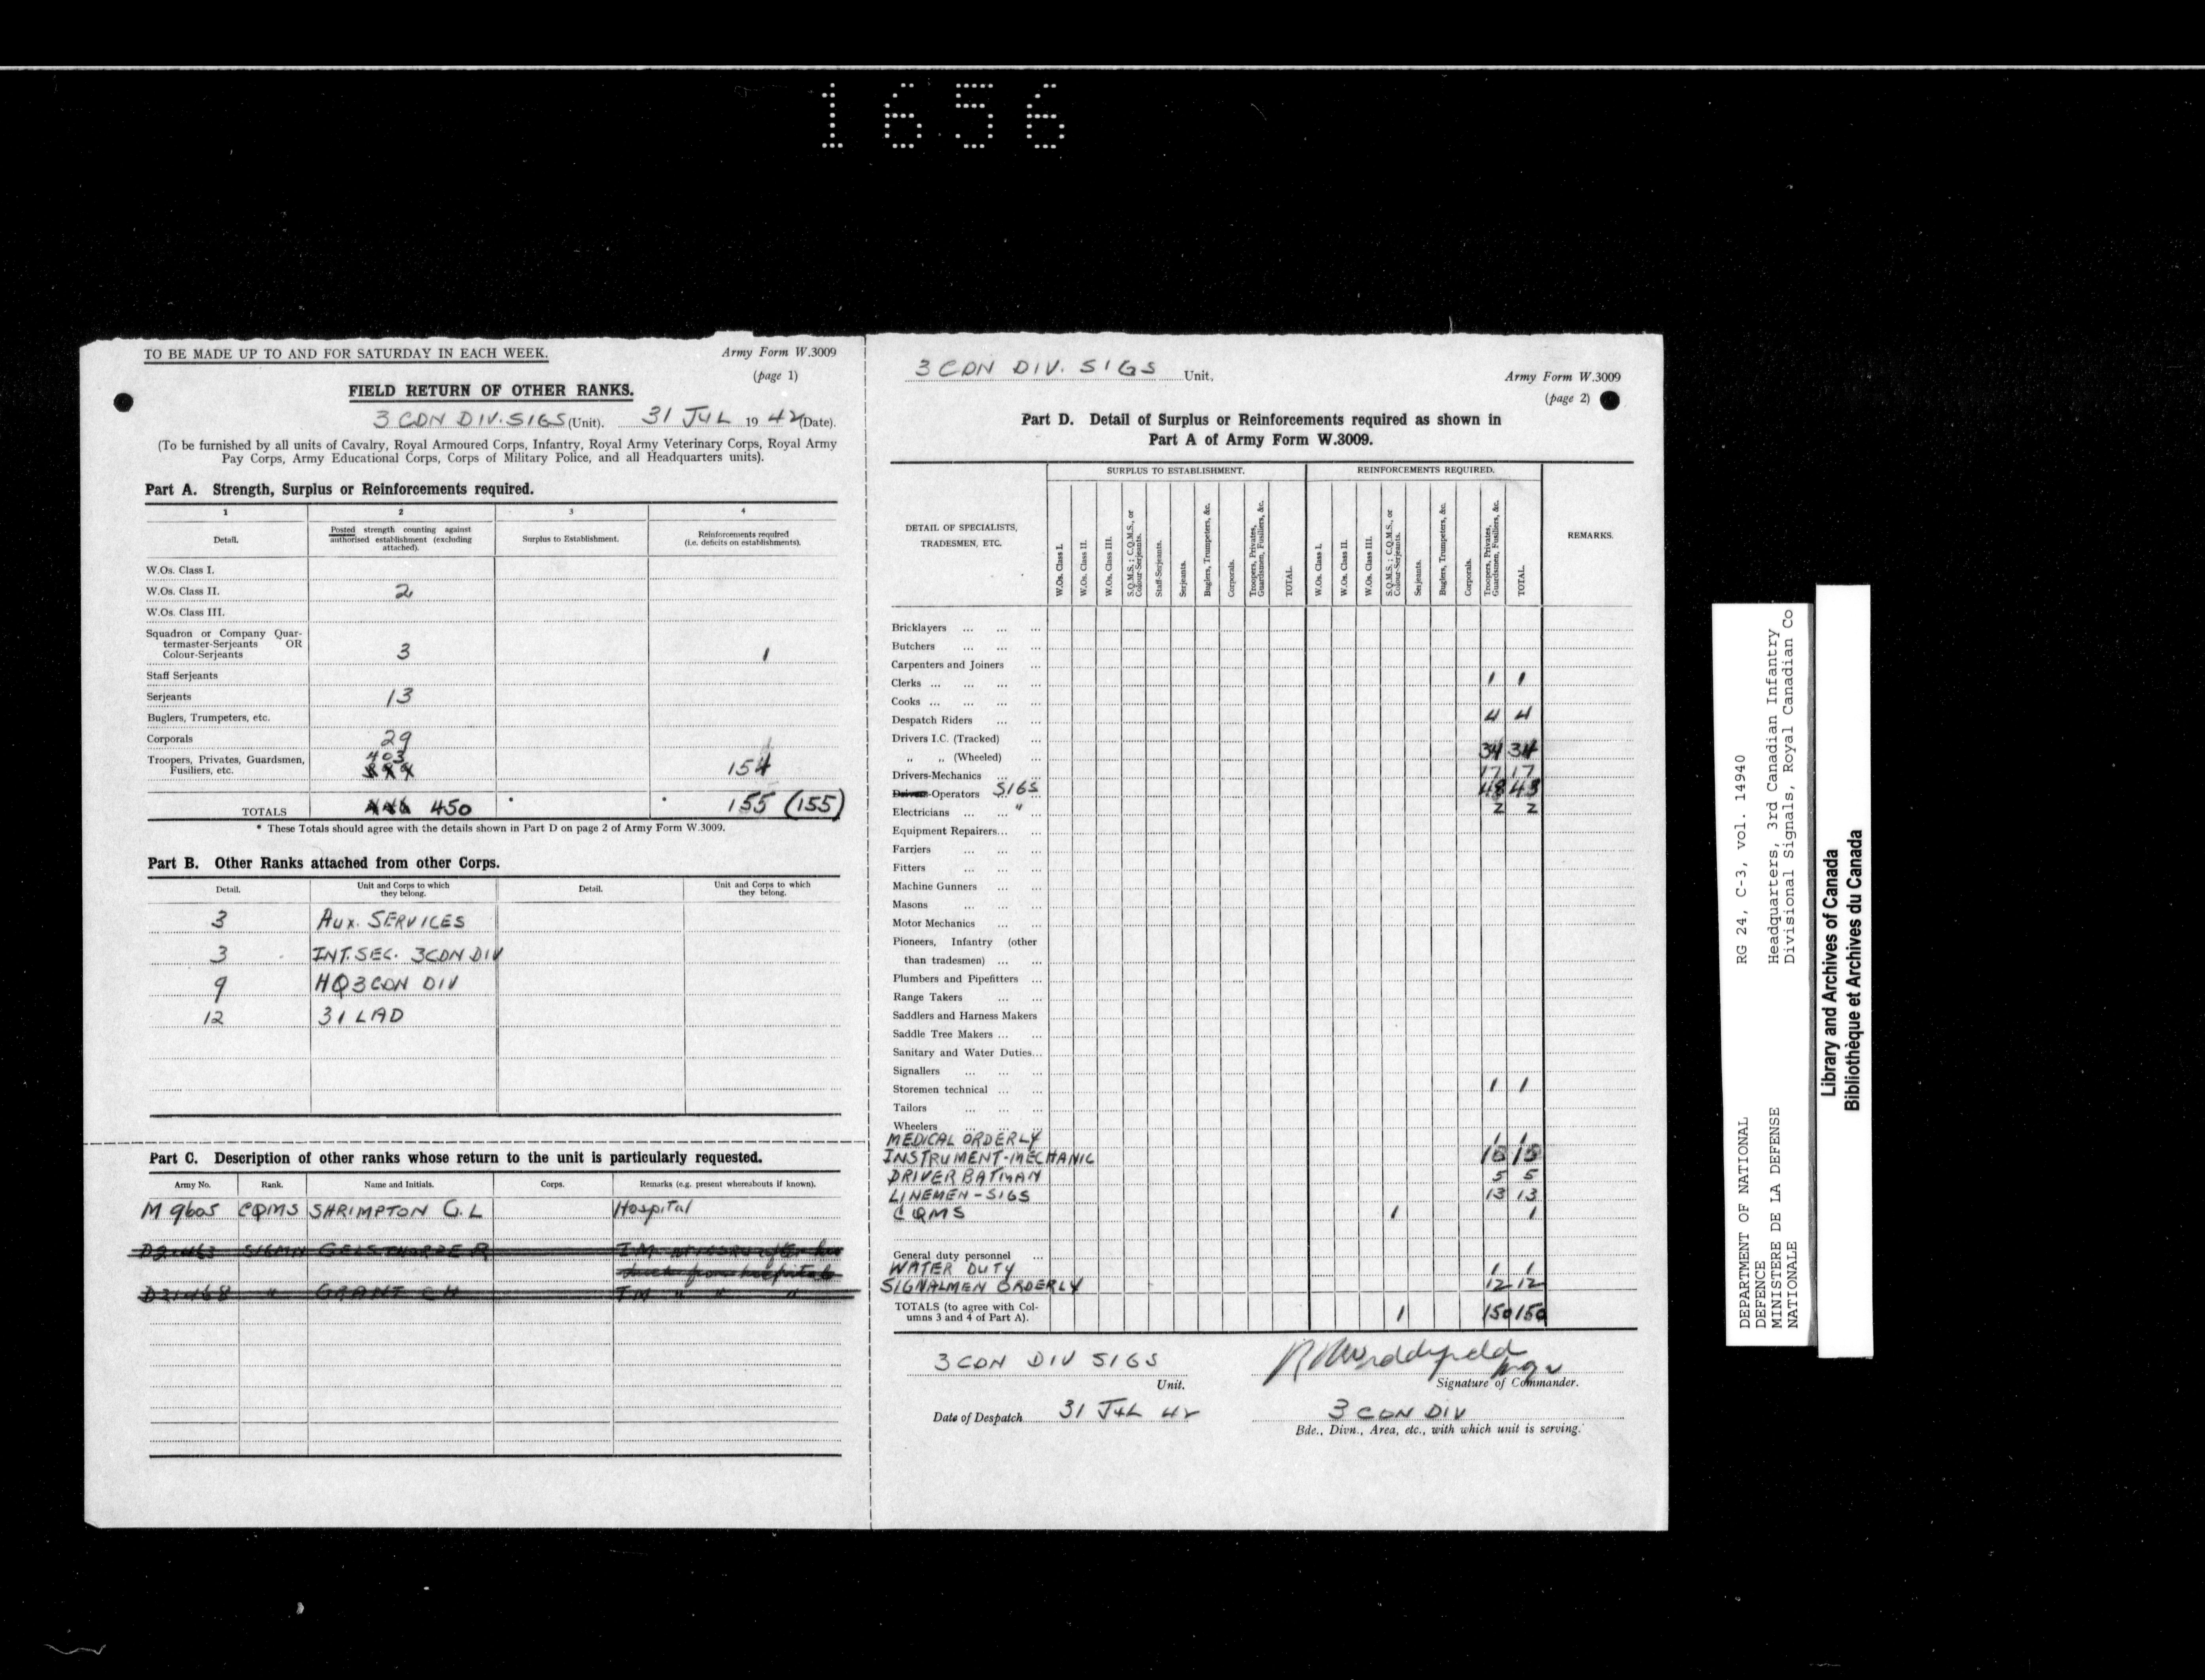 1656
TO BE MADE UP TO AND FOR SATURDAY IN EACH WEEK.
Army Form W.3009
(page 1)
FIELD RETURN OF OTHER RANKS.
3 CDN DIV. SIGS (Unit). 31 JUL 19 42 (Date).
(To be furnished by all units of Cavalry, Royal Armoured Corps, Infantry, Royal Army Veterinary Corps, Royal Army
Pay Corps, Army Educational Corps, Corps of Military Police, and all Headquarters units).
Part A. Strength, Surplus or Reinforcements required.
1 2 3 4
Detail. Posted strength counting against authorised establishment (excluding attached). Surplus to Establishment. Reinforcements required (i.e. deficits on establishments).
W.Os. Class I.
W.Os. Class II. 2
W.Os. Class III.
Squadron or Company Quar-
termaster-Serjeants OR
Colour-Serjeants 3 1
Staff Serjeants
Serjeants 13
Buglers, Trumpeters, etc.
Corporals 29
Troopers, Privates, Guardsmen, 403
Fusiliers, etc. 154
TOTALS 450 * * 155 (155)
* These Totals should agree with the details shown in Part D on page 2 of Army Form W.3009.
Part B. Other Ranks attached from other Corps.
Detail. Unit and Corps to which they belong. Detail. Unit and Corps to which they belong.
3 AUX. SERVICES
3 INT. SEC. 3 CDN DIV
9 HQ 3 CDN DIV
12 31 LAD
Part C. Description of other ranks whose return to the unit is particularly requested.
Army No. Rank. Name and Initials. Corps. Remarks (e.g. present whereabouts if known).
M 9605 CQMS SHRIMPTON G. L Hospital
SIGMN GELSTHORPE R
D21468 " GRANT C H " " "
3 CDN DIV. SIGS Unit,
Army Form W.3009
(page 2)
Part D. Detail of Surplus or Reinforcements required as shown in
Part A of Army Form W.3009.
DETAIL OF SPECIALISTS, TRADESMEN, ETC.
SURPLUS TO ESTABLISHMENT.
W.Os. Class I.
W.Os. Class II.
W.Os. Class III.
S.Q.M.S.; C.Q.M.S., or Colour-Serjeants.
Staff-Serjeants.
Serjeants.
Buglers, Trumpeters, &c.
Corporals.
Troopers, Privates, Guardsmen, Fusiliers, &c.
TOTAL.
REINFORCEMENTS REQUIRED.
W.Os. Class I.
W.Os. Class II.
W.Os. Class III.
S.Q.M.S.; C.Q.M.S., or Colour-Serjeants.
Serjeants.
Buglers, Trumpeters, &c.
Corporals.
Troopers, Privates, Guardsmen, Fusiliers, &c.
TOTAL.
REMARKS.
Bricklayers ... ... ...
Butchers ... ... ...
Carpenters and Joiners ...
Clerks ... ... ... ... 1 1
Cooks ... ... ... ...
Despatch Riders ... ... 4 4
Drivers I.C. (Tracked) ...
„ „ (Wheeled) ... 34 34
Drivers-Mechanics ... ... 17 17
Driver-Operators SIGS 48 48
Electricians ... ... " ... 2 2
Equipment Repairers... ...
Farriers ... ... ...
Fitters ... ... ...
Machine Gunners ... ...
Masons ... ... ...
Motor Mechanics ... ...
Pioneers, Infantry (other
than tradesmen) ... ...
Plumbers and Pipefitters ...
Range Takers ... ...
Saddlers and Harness Makers
Saddle Tree Makers ... ...
Sanitary and Water Duties...
Signallers ... ... ...
Storemen technical ... ... 1 1
Tailors ... ... ...
Wheelers ... ... ...
MEDICAL ORDERLY 1 1
INSTRUMENT-MECHANIC
DRIVER BATMAN 5 5
LINEMEN - SIGS 13 13
CQMS 1 1
General duty personnel ...
WATER DUTY 1 1
SIGNALMEN ORDERLY 12 12
TOTALS (to agree with Col-
umns 3 and 4 of Part A). 1 150 150
3 CDN DIV SIGS
Unit.
Signature of Commander.
Date of Despatch 31 JUL 42
3 CDN DIV
Bde., Divn., Area, etc., with which unit is serving.
DEPARTMENT OF NATIONAL
DEFENCE
MINISTERE DE LA DEFENSE
NATIONALE
RG 24, C-3, vol. 14940
Headquarters, 3rd Canadian Infantry
Divisional Signals, Royal Canadian Co
Library and Archives of Canada
Bibliothèque et Archives du Canada